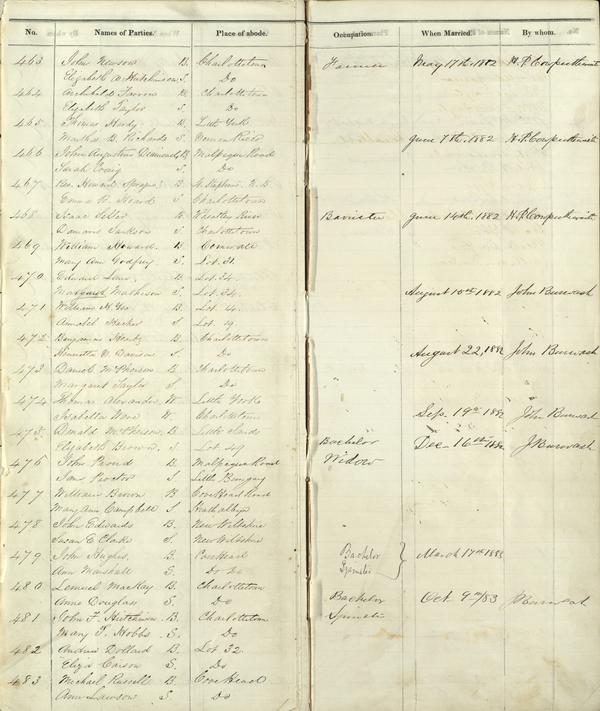 No. Names of Parties. Place of abode. Occupation. When Married. By whom.
463 John Newsom B. Charlottetown Farmer May 17th 1882 H. P. Cowperthwaite
Elizabeth A Hutchinson S. Do
464 Archibald B. Charlottetown
Elizabeth Taylor S. Do
465 Thomas Hardy B. Little York
Martha B. Richards S. June 7th, 1882 H. P. Cowperthwaite
466 John Augustus B. Malpeque Road
Sarah Craig S. Do
467 Rev. Howard Sprague B. St Stephens N. B.
Emma W. Heard S. Charlottetown
468 Isaac B. Wheatley River Barrister June 14th 1882 H. P. Cowperthwaite
Jackson S. Charlottetown
469 William Howard B. Cornwall
Mary Ann Godfrey S. Lot 31.
470 Edward Lane B. Lot 34.
Margaret Matheson S. Lot 34. August 10th 1882 John Burwash
471 William H. B. Lot 4.
Annabel S. Lot 19.
472 Benjamin B. Charlottetown
Henrietta S. Do August 22, 1882 John Burwash
473 Daniel McPherson B. Charlottetown
Margaret Taylor S. Do
474 Thomas Alexander W. Little York
Isabella W. Charlottetown Sep. 19th 1882 John Burwash
475 Donald McPherson B. Little Sands Bachelor Dec 16th 1882 J Burwash
Elizabeth Brown S. Lot 49 Widow
476 John Proud B. Malpeque Road
Jane Proctor S. Little Bungay
477 William Brown B. Cove Head Road
Mary Ann Campbell S.
478 John Edwards B. New Wiltshire
Susan E Clarke S. New Wiltshire
479 John Hughes B. Cove Head Bachelor March 17th 1883
Ann Marshall S. Do Do Spinster
480 Lemuel MacKay B. Charlottetown Bachelor Oct 9th/83 J Burwash
Anne Douglass S. Do Spinster
481 John F. Hutchison B. Charlottetown
Mary T. Hobbs S. Do
482 Andrew Dollard B. Lot 32
Eliza Carson S. Do
483 Michael Russell B. Cove Head
Ann Lawson S. Do